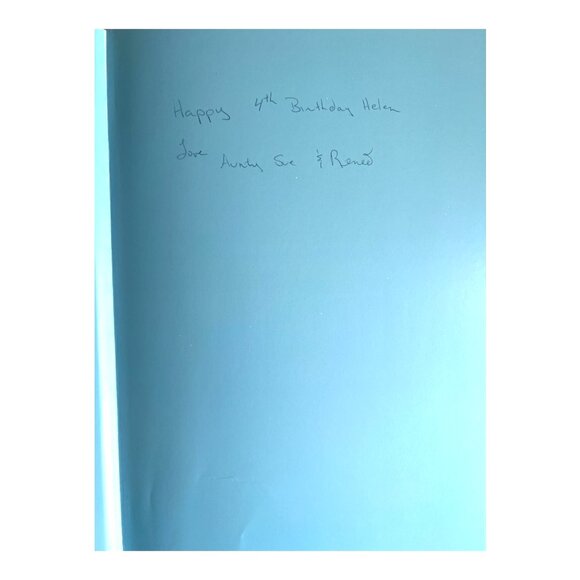 Happy 4th Birthday Helen
Love
Aunty Sue & Reneé